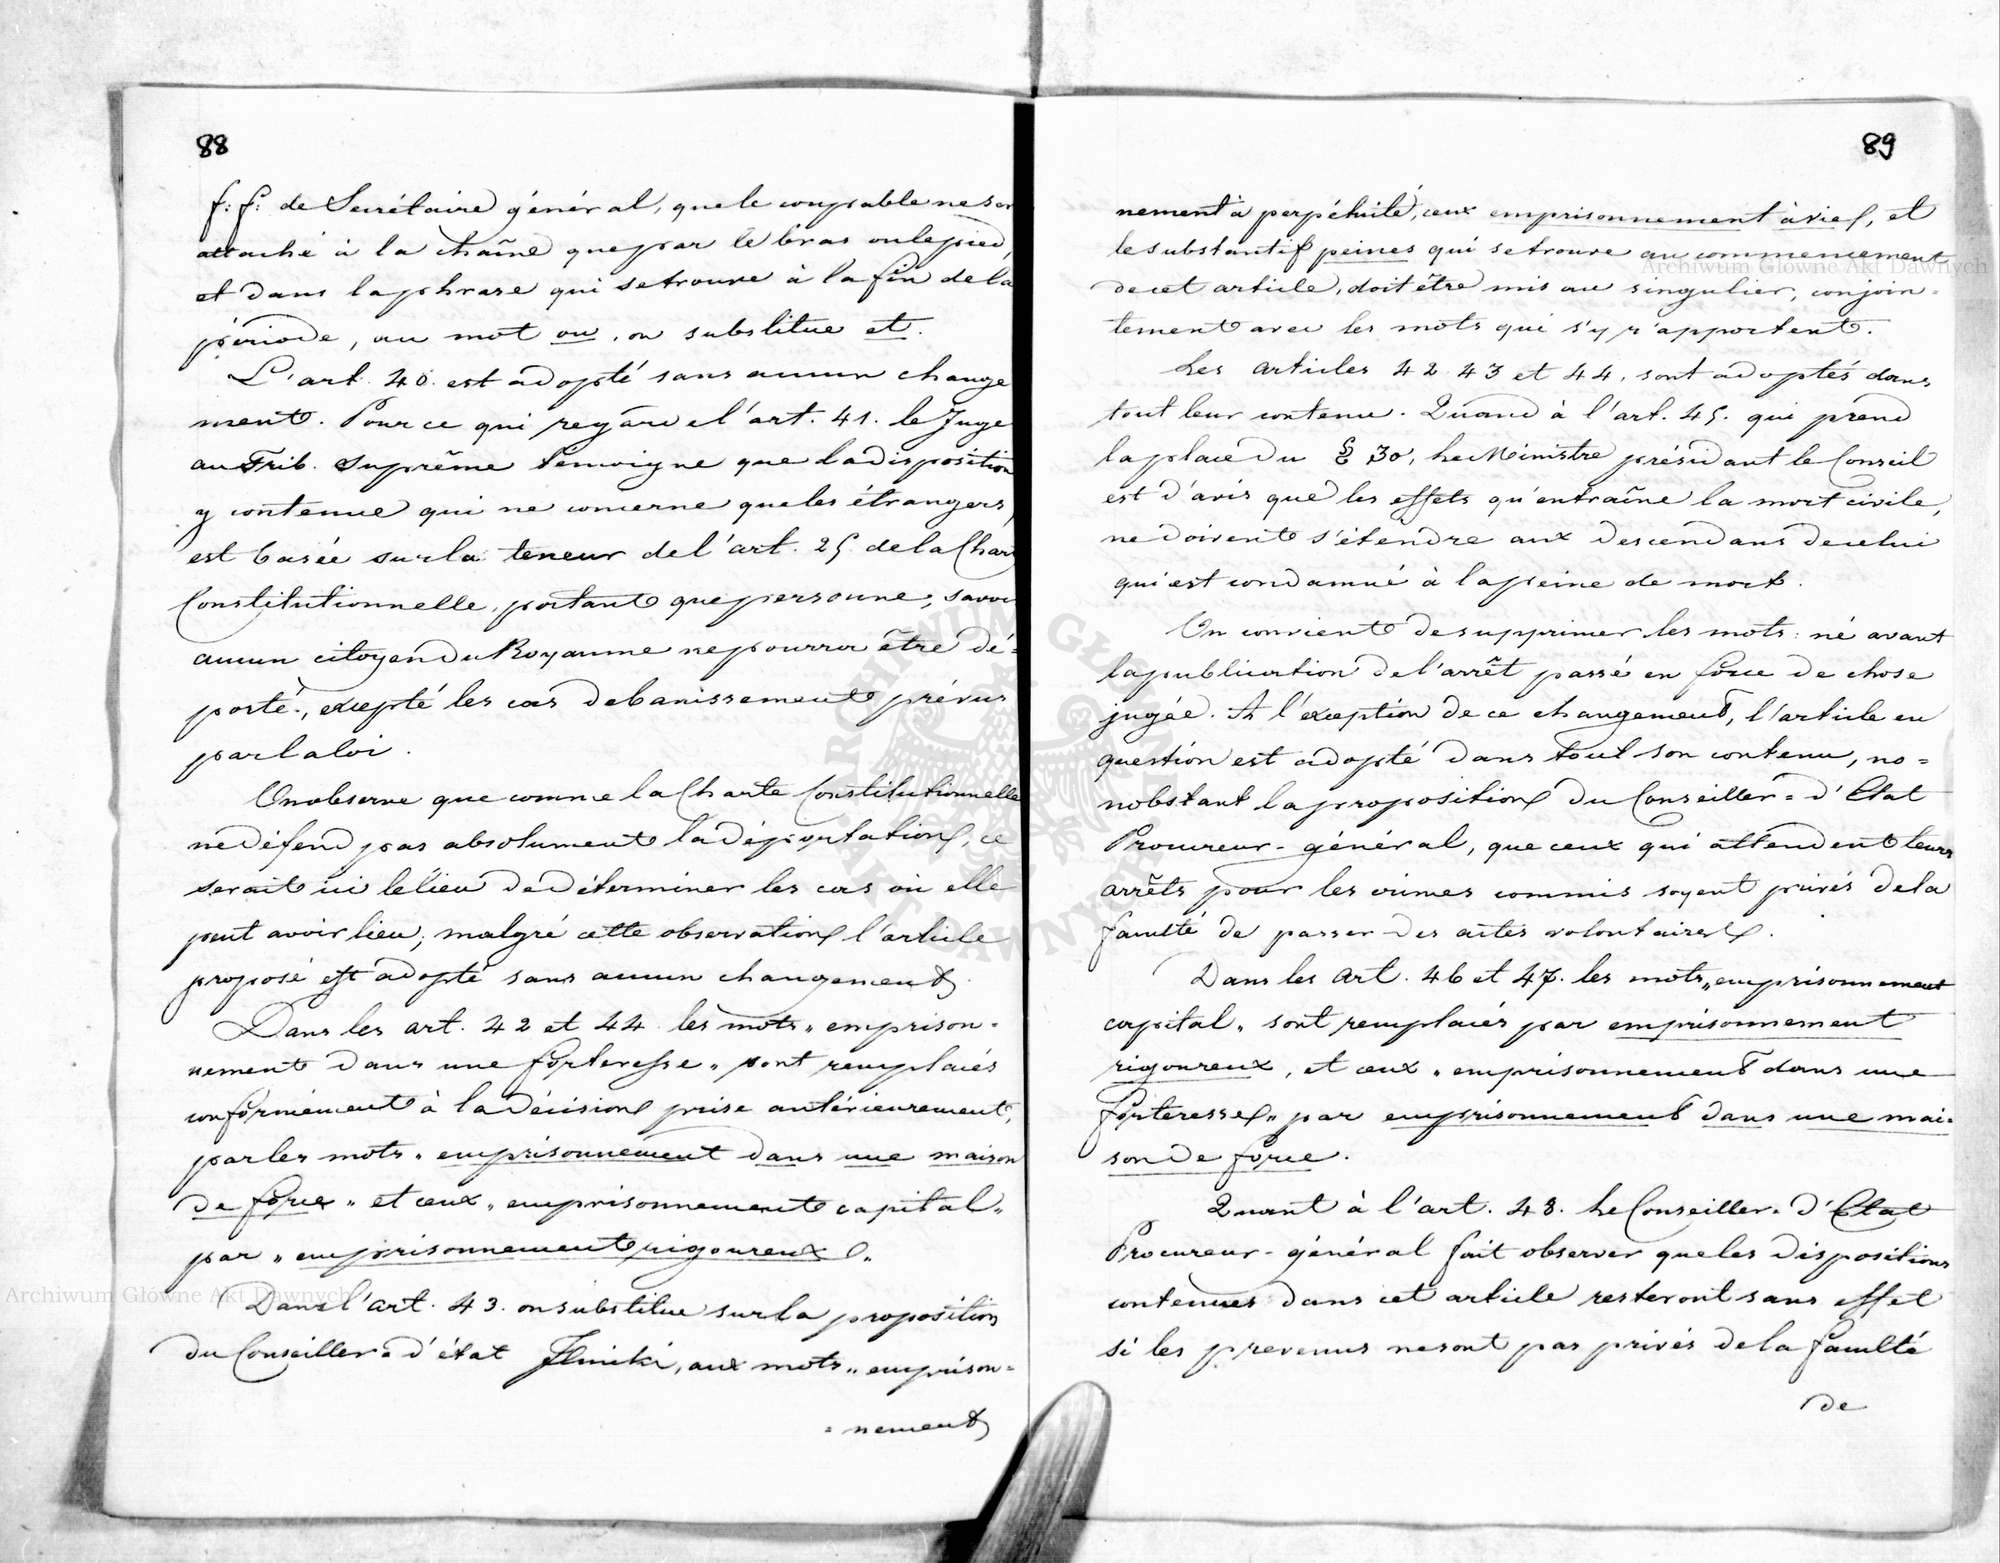 88
f: f: de Secrétaire général, que le coupable ne ser
attaché à la chaîne que par le bras ou le pied,
et dans la phrase qui se trouve à la fin de la
période, au mot ou, on substitue et.
L'art. 40. est adopté sans aucun change
ment. Pour ce qui regarde l'art. 41. le Juge
au Trib. Suprême témoigne que la disposition
y contenue qui ne concerne que les étrangers,
est basée sur la teneur de l'art. 25. de la Char
Constitutionnelle, portant que personne, savoi
aucun citoyen du Royaume ne pourra être dé=
porté, excepté les cas de banissement prévus
par la loi.
On observe que comme la Charte Constitutionnelle
ne défend pas absolument la déportation, ce
serait ici le lieu de déterminer les cas où elle
peut avoir lieu; malgré cette observation l'article
proposé est adopté sans aucun changement.
Dans les art. 42 et 44. les mots „ emprison=
nement dans une forteresse „ sont remplacés
conformément à la décision prise antérieurement,
par les mots „ emprisonnement dans une maison
de force „ et ceux „ emprisonnement capital „
par „ emprisonnement rigoureux „.
Dans l'art. 43. on substitue sur la proposition
du Conseiller=d'état, aux mots „ emprison=
=nement
89
nement à perpétuité, ceux emprisonnement à vie, et
le substantif peines qui se trouve au commencement
de cet article, doit être mis au singulier, conjoin=
tement avec les mots qui s'y r'apportent.
Les articles 42 43 et 44. sont adoptés dans
tout leur contenu. Quand à l'art. 45. qui prend
la place du § 30, le Ministre présidant le Conseil
est d'avis que les effets qu'entraîne la mort civile,
ne doivent s'étendre aux descendans de celui
qui est condamné à la peine de mort.
On convient de supprimer les mots: né avant
la publication de l'arrêt passé en force de chose
jugée. A l'exception de ce changement, l'article en
question est adopté dans tout son contenu, no=
nobstant la proposition du Conseiller=d'Etat
Procureur-général, que ceux qui attendent leurs
arrêts pour les crimes commis soyent privés de la
faculté de passer des actes volontaires.
Dans les art. 46 et 47. les mots „ emprisonnement
capital „ sont remplacés par emprisonnement
rigoureux, et ceux „ emprisonnement dans une
forteresse „ par emprisonnement dans une mai=
son de force.
Quant à l'art. 48. le Conseiller=d'Etat
Procureur-général fait observer que les dispositions
contenues dans cet article resteront sans effet
si les prevenus ne sont pas privés de la faculté
de
Archiwum Główne Akt Dawnych
Archiwum Główne Akt Dawnych
ARCHIWUM GŁÓWNE AKT DAWNYCH